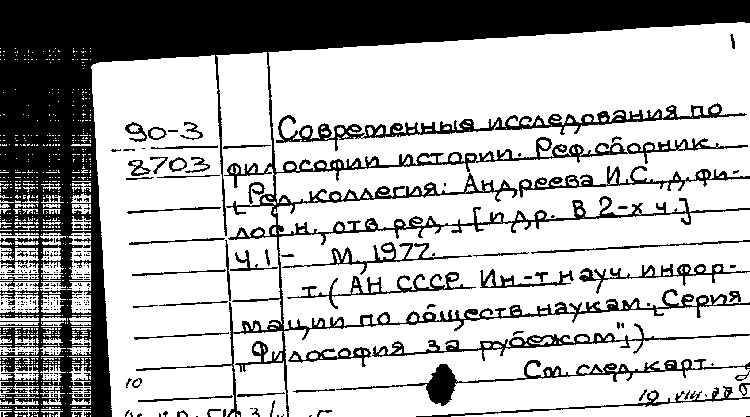 1
90-3 Современные исследования по
8703 философии истории. Реф. сборник.
[Ред. коллегия: Андреева И.С., д. фи-
лос. н., отв. ред.,] [и др. В 2-х ч.]
Ч.1 - М., 1977.
т. (АН СССР. Ин-т науч. инфор-
мации по обществ. наукам. [Серия
"Философия за рубежом"])
См. след. карт.
10